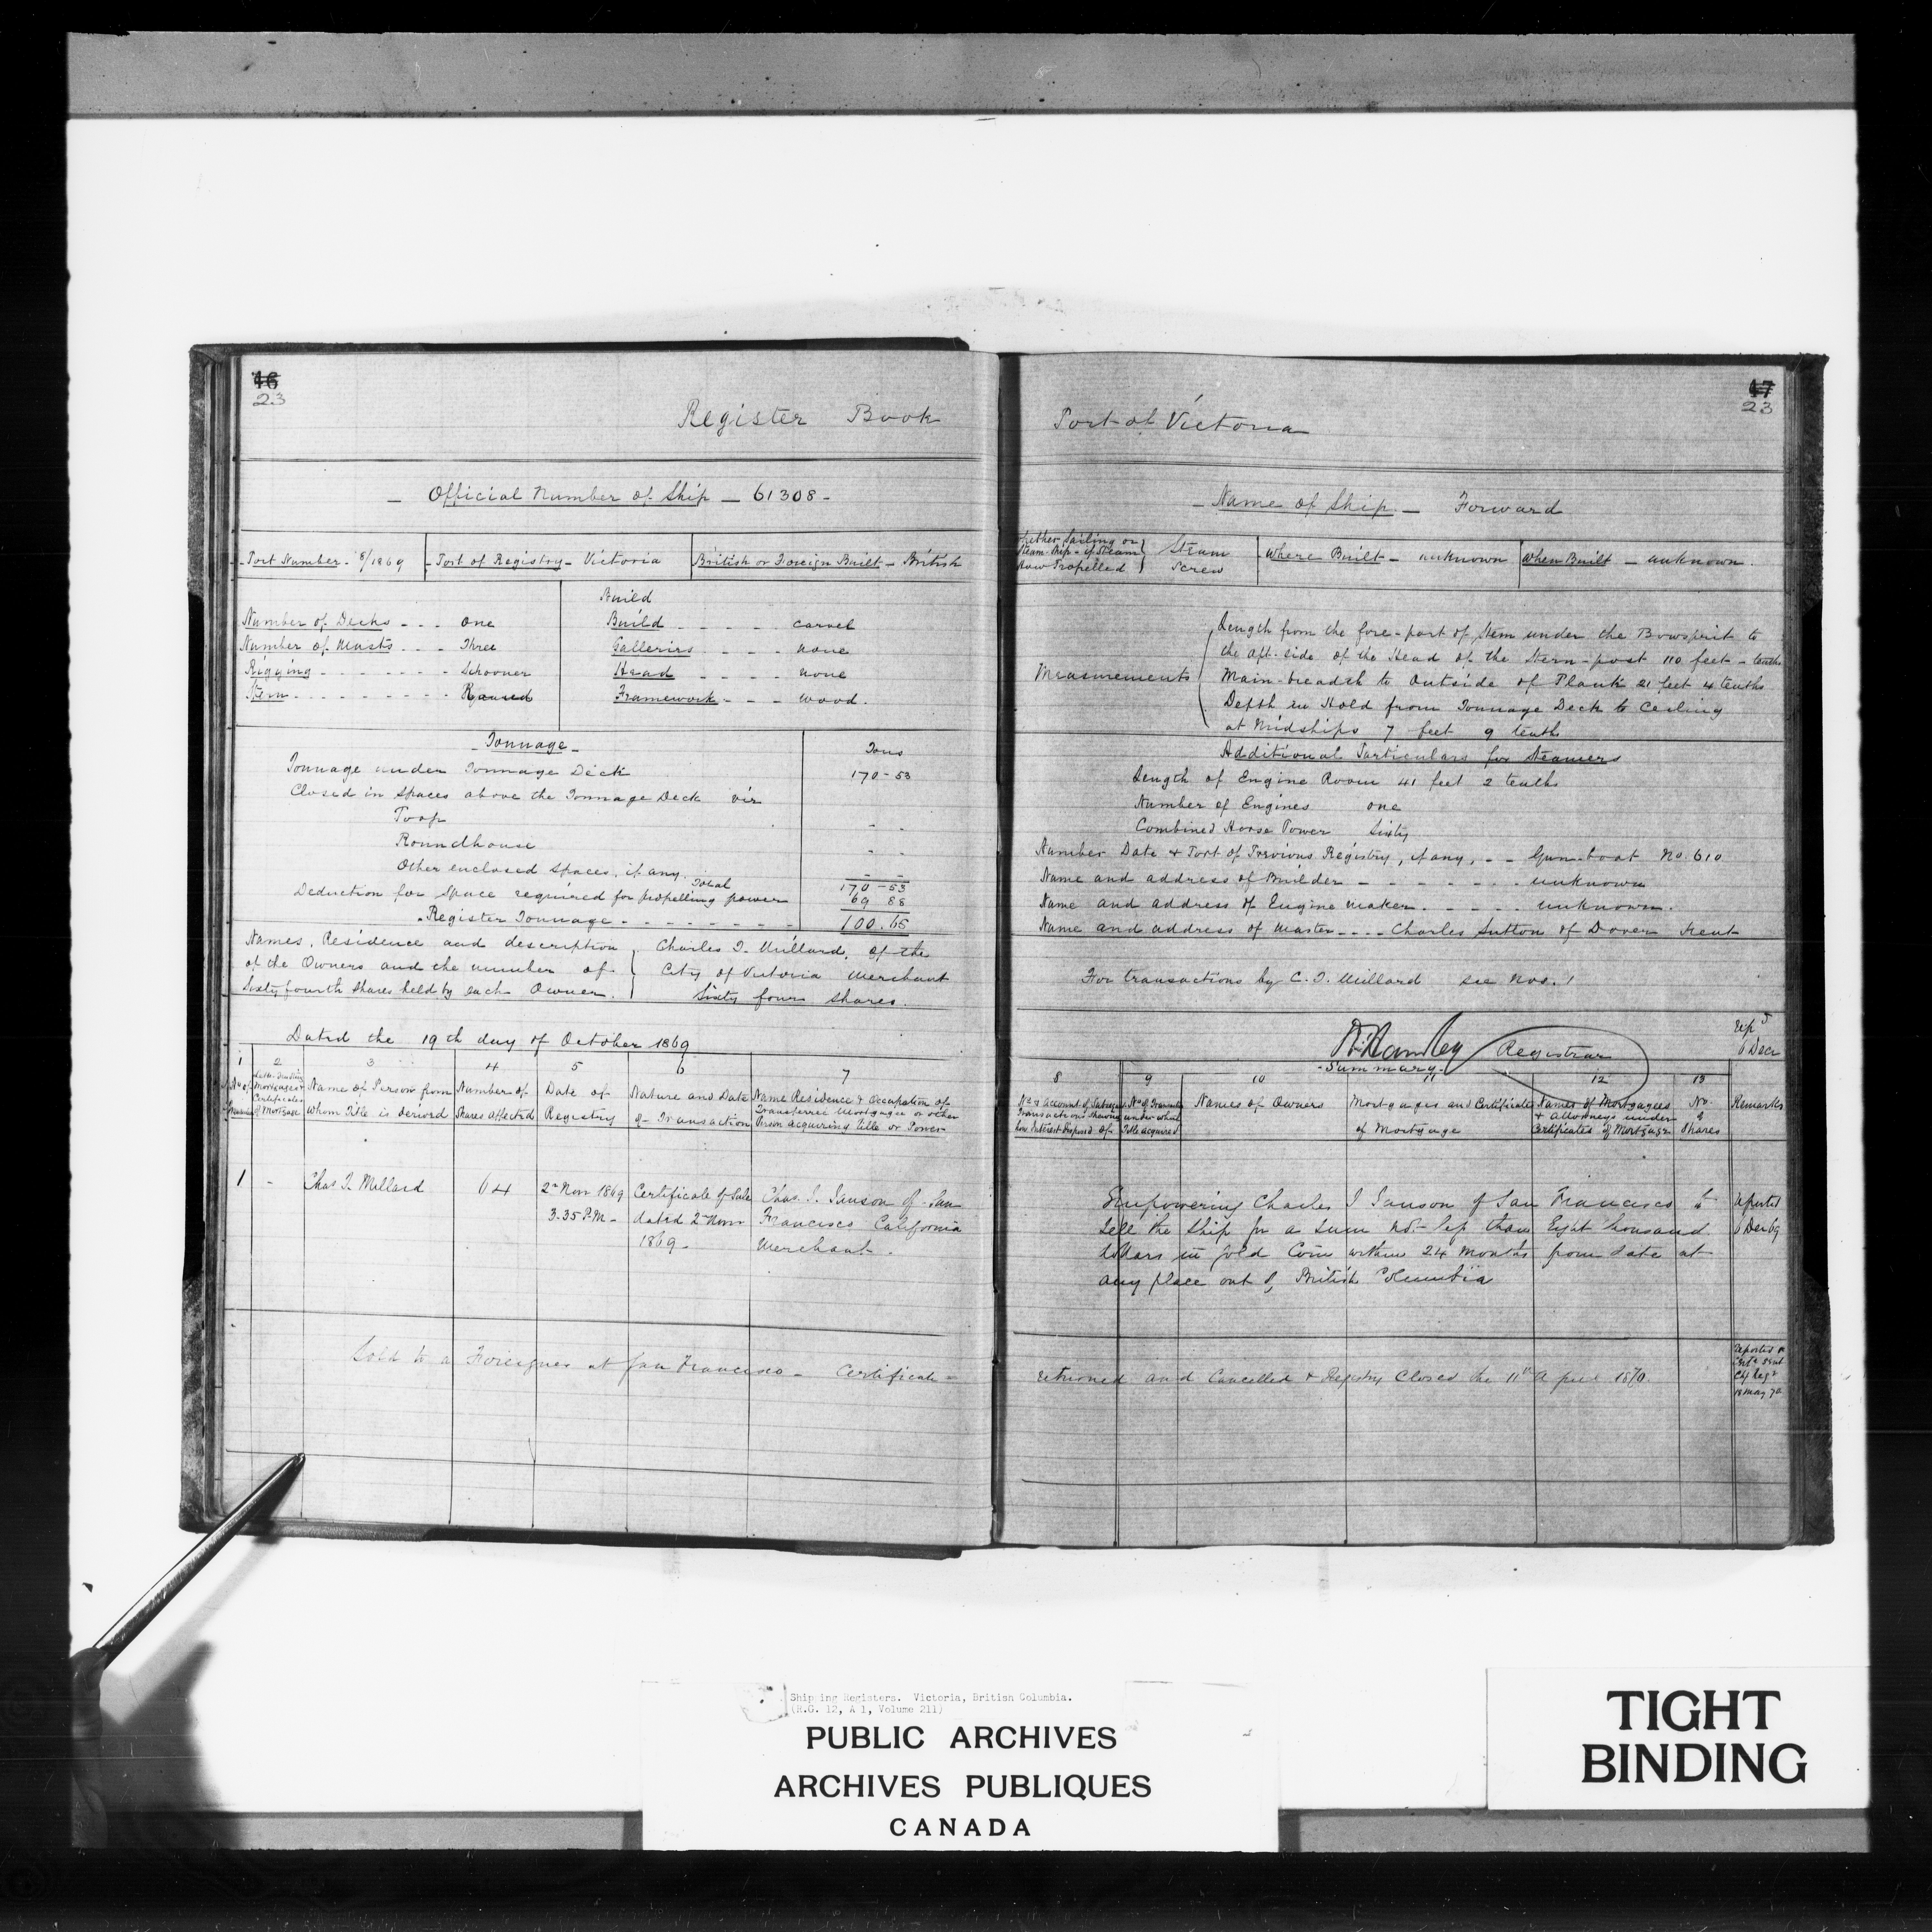 16
23
Register Book
Official Number of Ship - 61308 -
Port Number - 8/1869
Port of Registry - Victoria
British or Foreign Built - British
Build
Number of Decks - - - one
Build - - - - - carvel
Number of Masts - - - Three
Galleries - - - - none
Rigging - - - - - - - Schooner
Head - - - - - none
Stern - - - - - - - - - Round
Framework - - - - wood.
- Tonnage -
Tons
Tonnage under Tonnage Deck 170-53
Closed in Spaces above the Tonnage Deck viz
Poop - -
Roundhouse - -
Other enclosed Spaces, if any. - -
Total 170-53
Deduction for Space required for propelling power 69 88
Register Tonnage - - - - - - - 100.65
Names, Residence and description
of the Owners and the number of
Sixty fourth Shares held by each Owner.
Charles T. Millard, of the
City of Victoria Merchant
Sixty four shares.
Dated the 19th day of October 1869
1 2 3 4 5 6 7
Name of Person from
whom Title is derived
Number of
Shares affected
Date of
Registry
Nature and Date
of Transaction
Name Residence & Occupation of
Transferree Mortgagee or other
Person acquiring title or Power
1 - Chas T. Millard 64
2nd Novr 1869
3.35 P.M. -
Certificate of Sale
dated 2nd Novr
1869 -
Chas. J. Janson of San
Francisco California
Merchant.
Sold to a Foreigner at San Francisco - Certificate -
17
23
Port of Victoria
- Name of Ship - Forward
Whether Sailing or
Steam Ship - if Steam
How Propelled
Steam
Screw
Where Built - unknown
When Built - unknown.
Measurements
Length from the fore-part of Stem under the Bowsprit to
the aft-side of the Head of the Stern-post 110 feet - tenths
Main-breadth to Outside of Plank 21 feet 4 tenths
Depth in Hold from Tonnage Deck to Ceiling
at Midships 7 feet 9 tenths
Additional Particulars for Steamers
Length of Engine Room 41 feet 2 tenths
Number of Engines one
Combined Horse Power Sixty
Number Date & Port of Previous Registry, if any, - - Gun-boat No. 610
Name and address of Builder - - - - - - - unknown
Name and address of Engine maker. - - - - unknown.
Name and address of Master - - - - Charles Sutton of Dover Kent
For transactions by C. T. Millard see Nos. 1
Registrar
6 Decr
- Summary -
8 9 10 11 12 13
No. & account of Subsequent
Transactions showing
how Interest disposed of
No. of Transn
under which
Title acquired
Names of Owners
Mortgages and Certificates
of Mortgage
Names of Mortgagees
& Attorneys under
Certificates of Mortgage
No.
of
Shares
Remarks
Empowering Charles J Janson of San Francisco to
Sell the Ship for a sum not less than Eight thousand
dollars in gold Coin within 24 Months from date at
any place out of British Columbia
reported
6 Dec 69
returned and Cancelled & Registry Closed the 11th April 1870.
18 May 70
Shipping Registers. Victoria, British Columbia.
(R.G. 12, A 1, Volume 211)
PUBLIC ARCHIVES
ARCHIVES PUBLIQUES
CANADA
TIGHT
BINDING